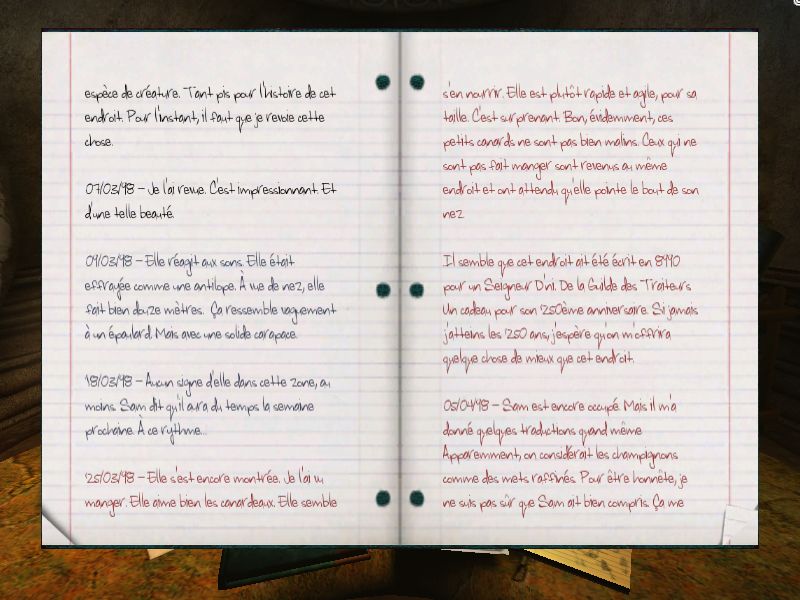 espèce de créature. Tant pis pour l'histoire de cet
endroit. Pour l'instant, il faut que je revoie cette
chose.
07/03/98 - Je l'ai revue. C'est impressionnant. Et
d'une telle beauté.
09/03/98 - Elle réagit aux sons. Elle était
effrayée comme une antilope. À vue de nez, elle
fait bien douze mètres. Ça ressemble vaguement
à un épaulard. Mais avec une solide carapace.
18/03/98 - Aucun signe d'elle dans cette zone, au
moins. Sam dit qu'il aura du temps la semaine
prochaine. À ce rythme...
25/03/98 - Elle s'est encore montrée. Je l'ai vu
manger. Elle aime bien les canardeaux. Elle semble
s'en nourrir. Elle est plutôt rapide et agile, pour sa
taille. C'est surprenant. Bon, évidemment, ces
petits canards ne sont pas bien malins. Ceux qui ne
sont pas fait manger sont revenus au même
endroit et ont attendu qu'elle pointe le bout de son
nez.
Il semble que cet endroit ait été écrit en 8990
pour un Seigneur D'ni. De la Guilde des Traiteurs
Un cadeau pour son 250ème anniversaire. Si jamais
j'atteins les 250 ans, j'espère qu'on m'offrira
quelque chose de mieux que cet endroit.
05/04/98 - Sam est encore occupé. Mais il m'a
donné quelques traductions quand même
Apparemment, on considérait les champignons
comme des mets raffinés. Pour être honnête, je
ne suis pas sûr que Sam ait bien compris. Ça me